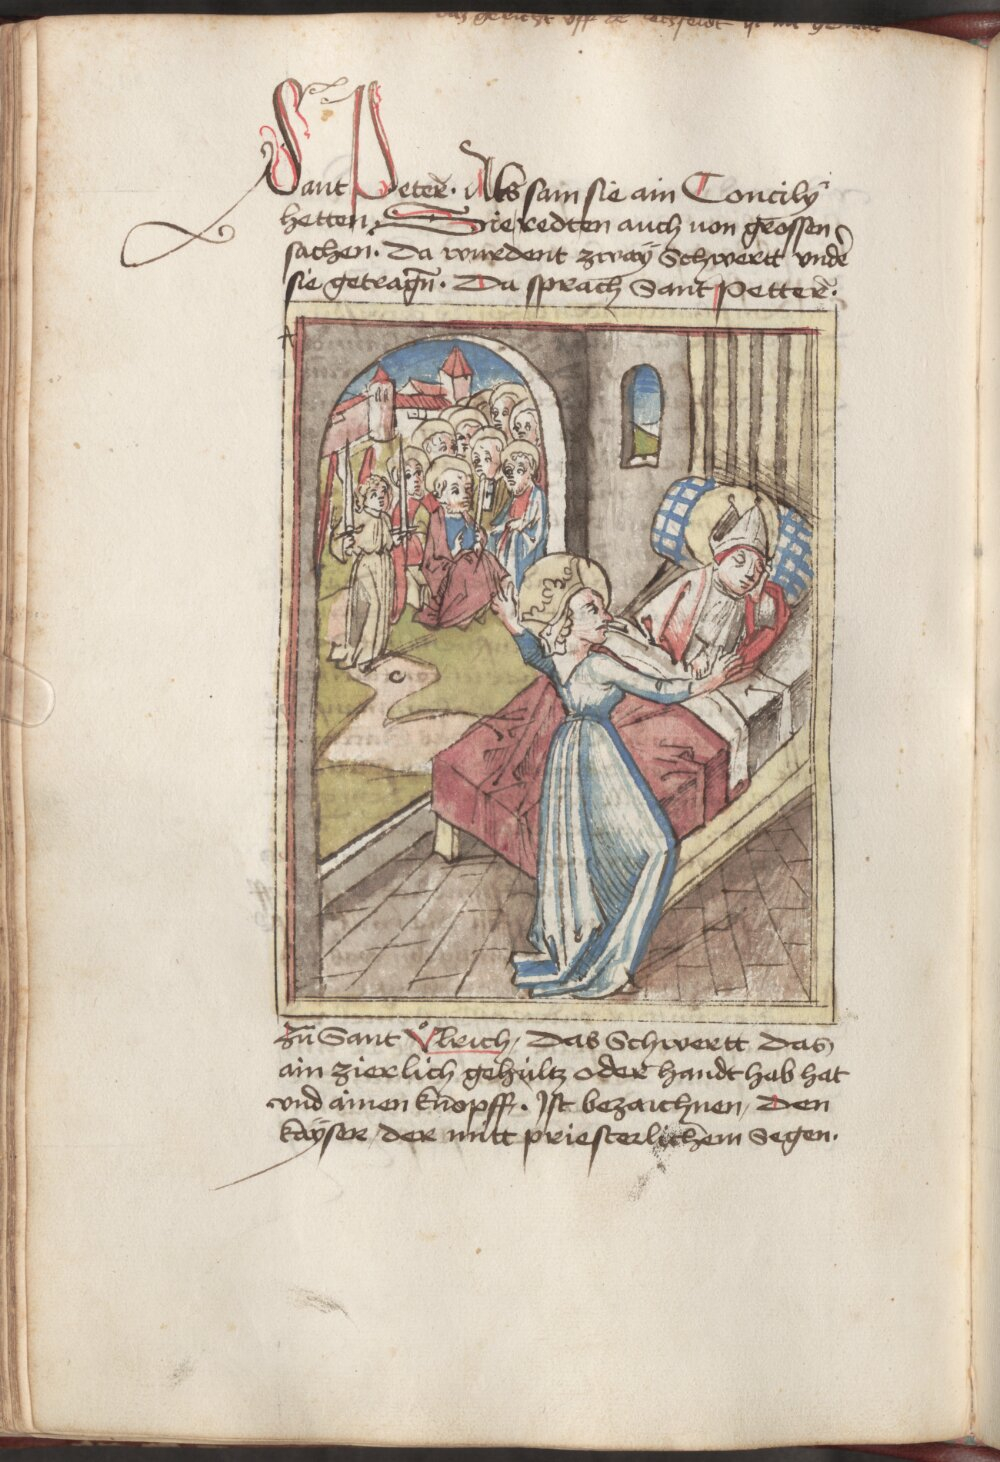 das gericht vff de
Sant Peter. Als sam sie ain Concily
hetten. Sie redten auch von grossen
sachen. Da wurdent zway Schwertt vnder
sie getragn̄. Da sprach Sant Petter.
Zu Sant Vͦlrich, Das Schwertt das
ain zierlich gehultz oder handthab hat
vnd ainen knopff. Ist bezaichnen, Den
kayser, der mitt priesterlichem Segen.